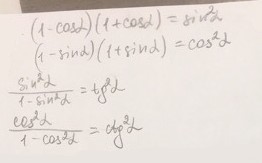 (1-cosα)(1+cosα)=sin²α
(1-sinα)(1+sinα)=cos²α
sin²α/1-sin²α=tg²α
cos²α/1-cos²α=ctg²α